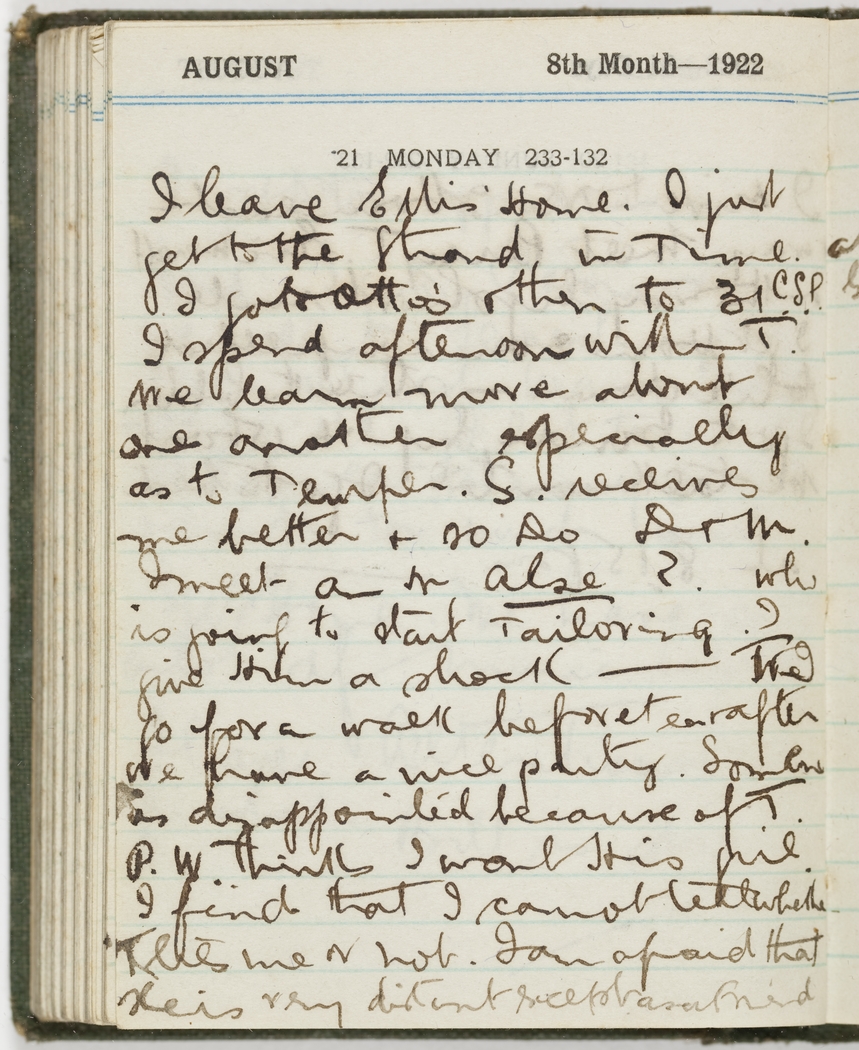 AUGUST 8th Month—1922
21 MONDAY 233-132
I leave Ellis' Home. I just
get to the Strand in Time.
I go to Otto's then to 31 C.S.P.
I spend afternoon with T.
We learn more about
one another especially
as to Temper. S. receives
me better + so do D + M.
I meet a Mr Alse ?. who
is going to start Tailoring. I
give Him a shock —— We
go for a walk before tea + after
we have a nice party.
is disappointed because of T.
P. W. thinks I want His girl.
I find that I cannot tell whether
T likes me or not. I am afraid that
She is very distant except as a Friend